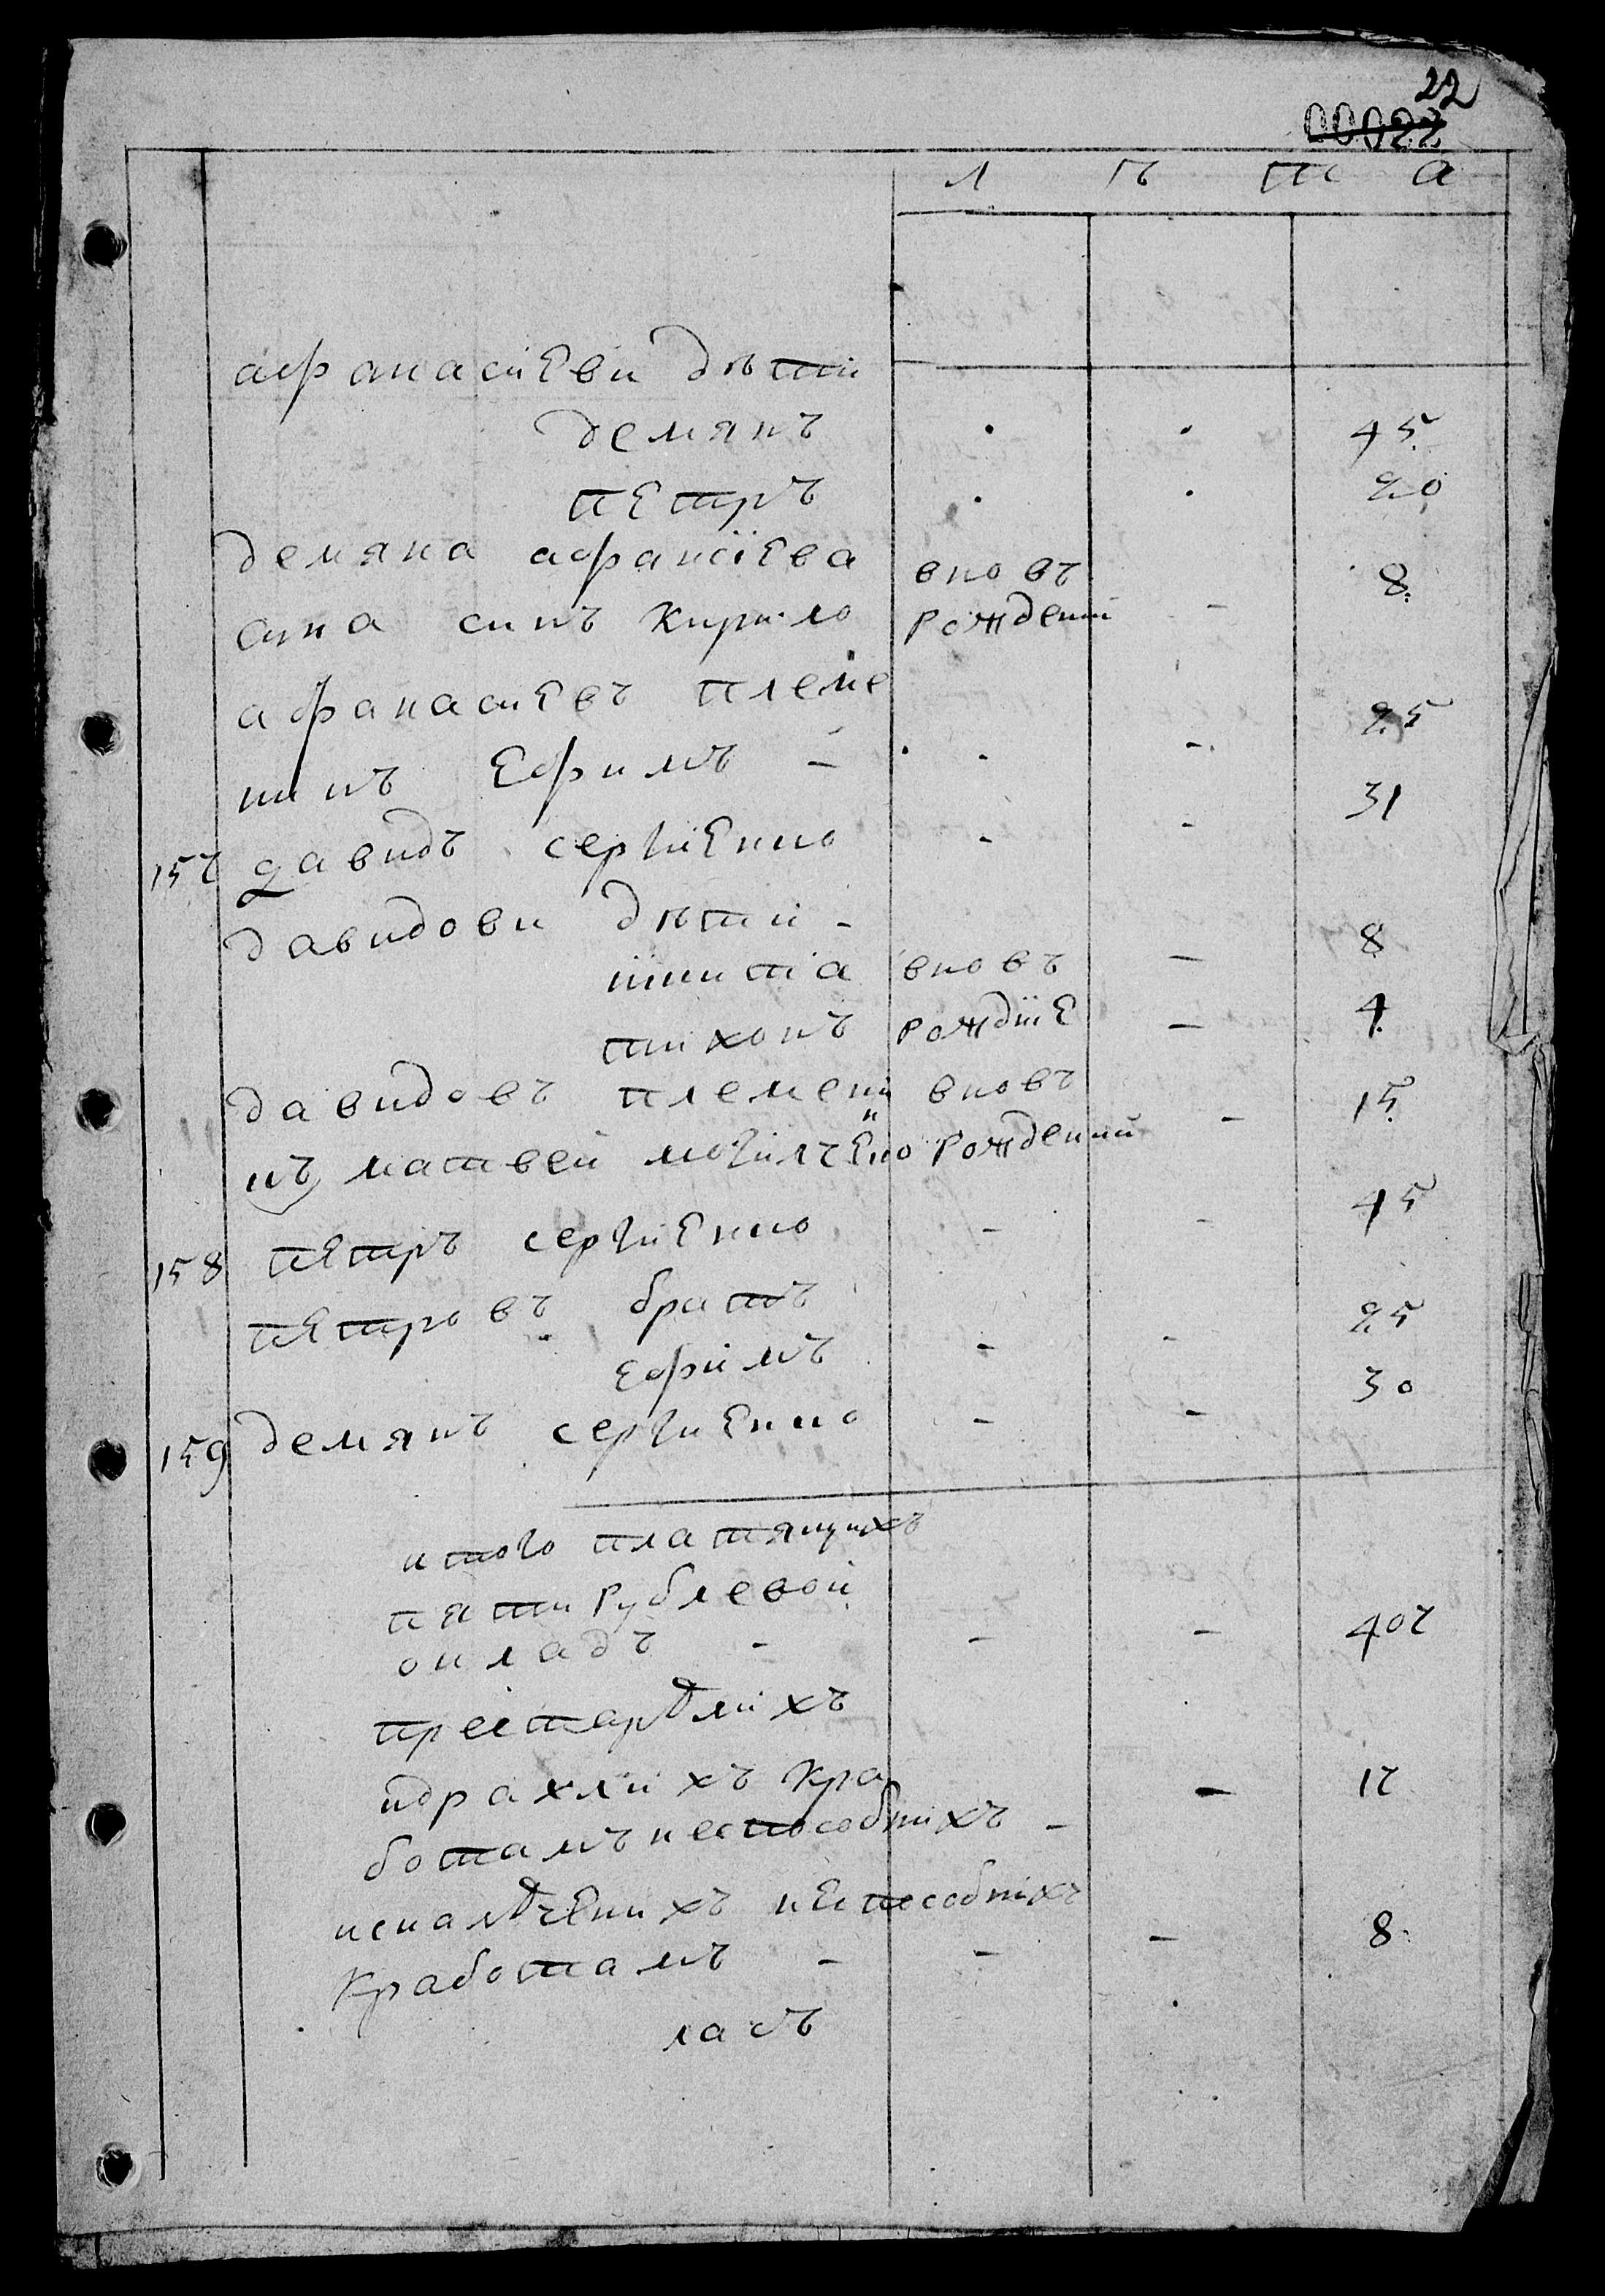 22
00022
л ѣ т а
афанасиеви дѣти
демянъ . . 45
петръ . . 20
демяна афансиева вновъ 8
сина синъ Кирило рожденій -
афанасиевъ племе
никъ Ефимъ - - - 25
157 давидъ сергиенко - - 31
давидови дѣти -
никита вновъ - 8
тихонъ рождшіе - 4
давидовъ племени вновъ 15
къ матвей могилченко рожденний -
158 петръ сергиенко - - 45
петровъ братъ
ефимъ - - 25
159 демянъ сергиенко - - 30
итого платящихъ
пятирублевой
окладъ - - - 407
престарѣлихъ
идряхлихъ Кра
ботамъ неспособнихъ - - 17
искалѣченихъ неспособнихъ
Кработамъ - - - 8